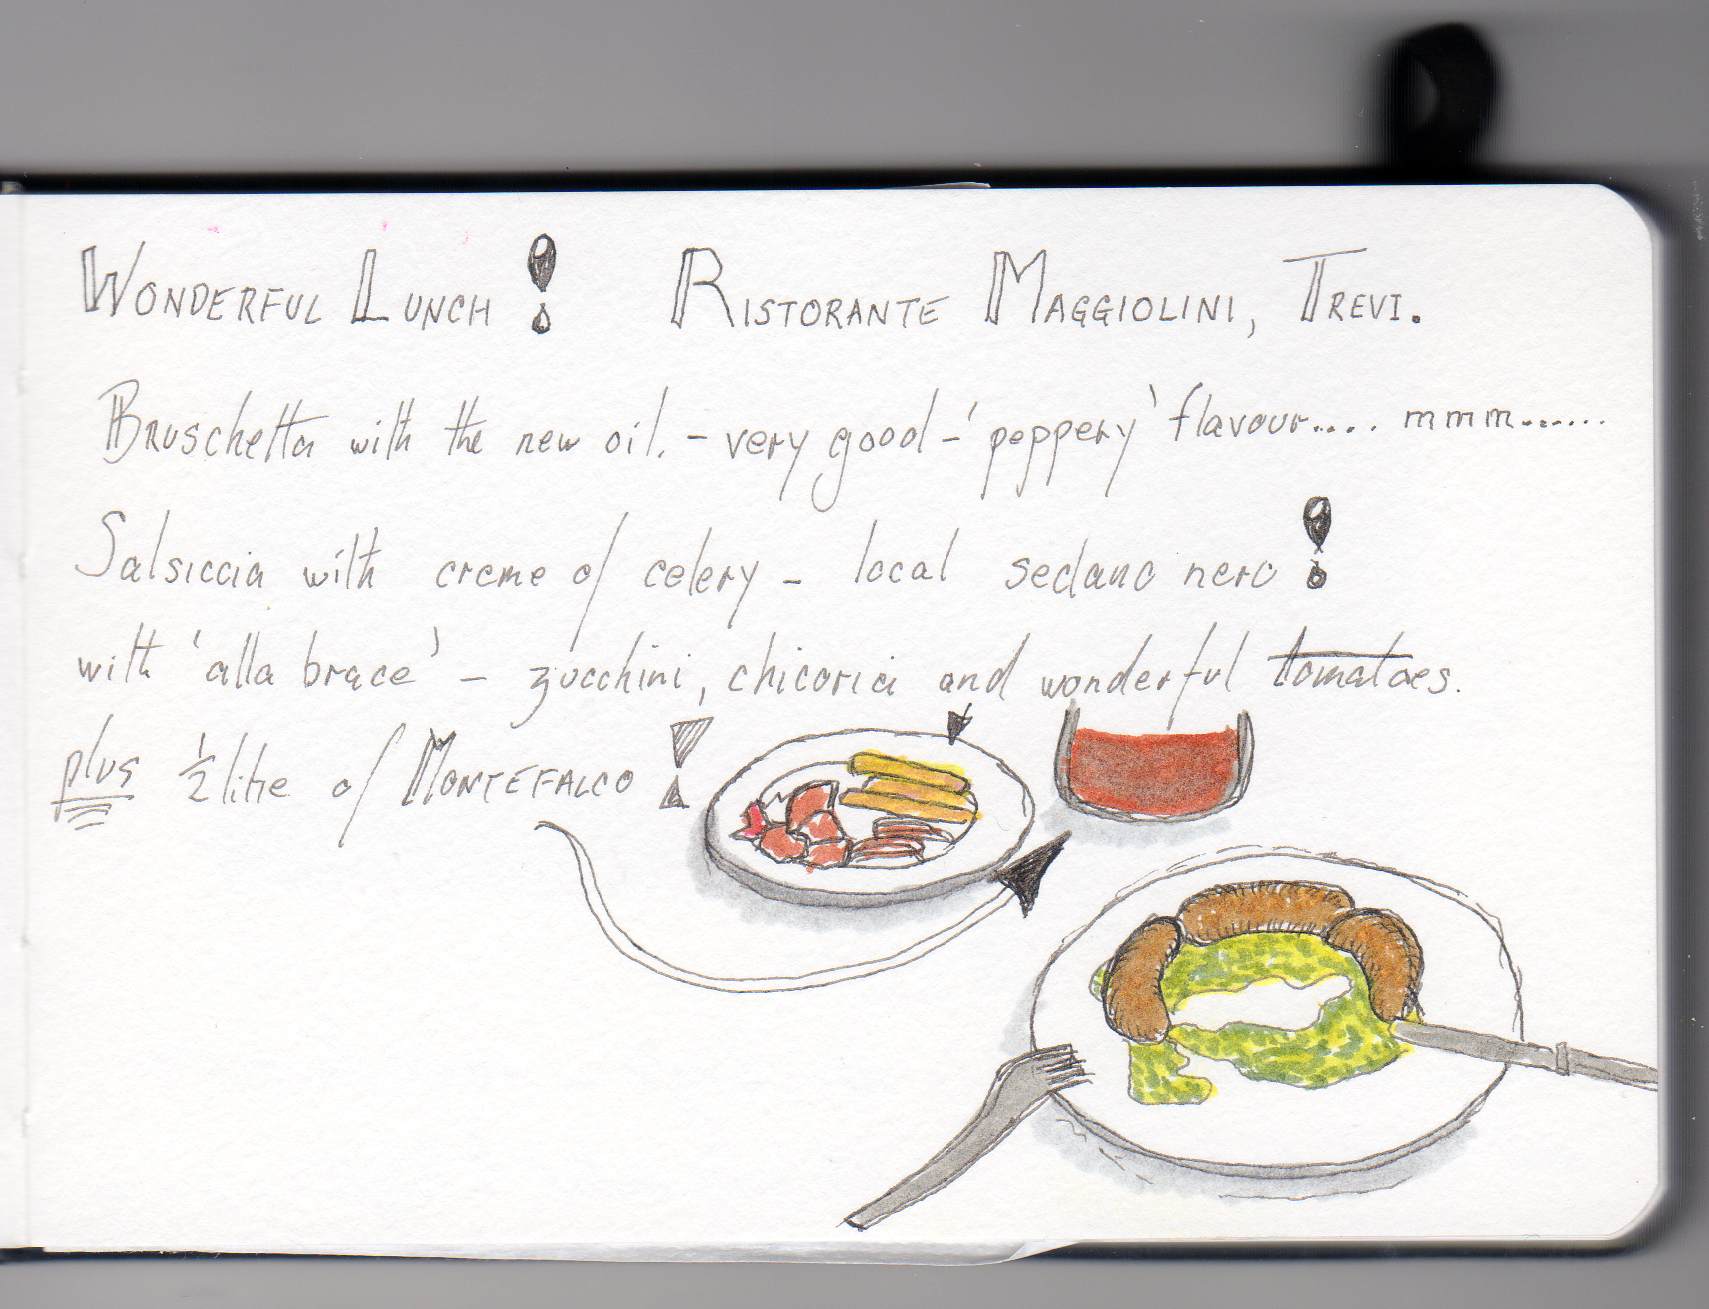 WONDERFUL LUNCH! RISTORANTE MAGGIOLINI, TREVI.
BRUSchetta with the new oil. - very good - 'peppery' flavour.... mmm......
Salsiccia with creme of celery - local sedano nero!
with 'alla brace' - zucchini, chicoria and wonderful tomatoes.
plus ½ litre of MONTEFALCO!